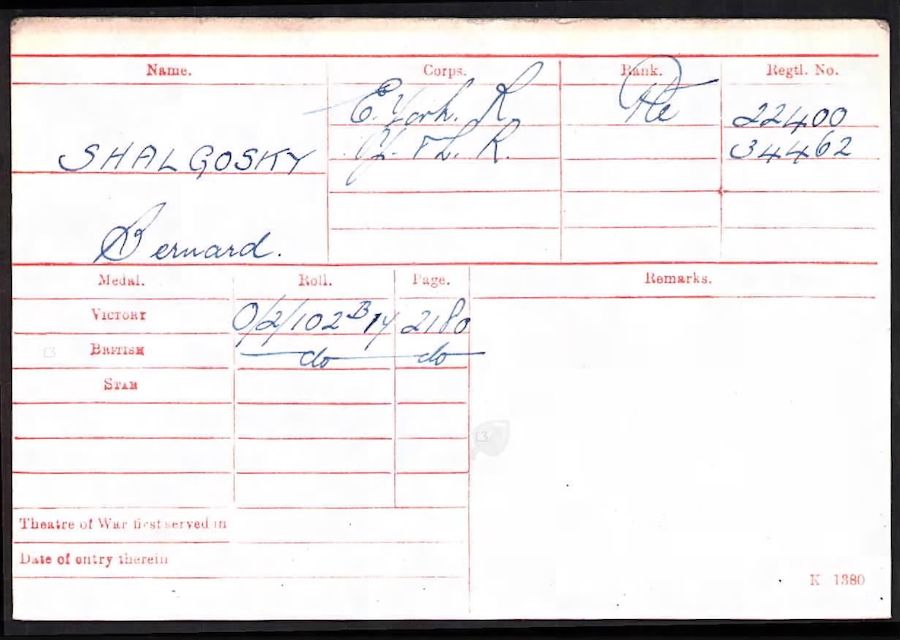 Name. Corps. Rank. Regtl. No.
E. York. R. Pte 22400
SHALGOSKY Y. & L. R. 34462
Bernard.
Medal. Roll. Page. Remarks.
VICTORY O/2/102 B 14 2180
BRITISH do do
STAR
Theatre of War first served in
Date of entry therein
K 1380